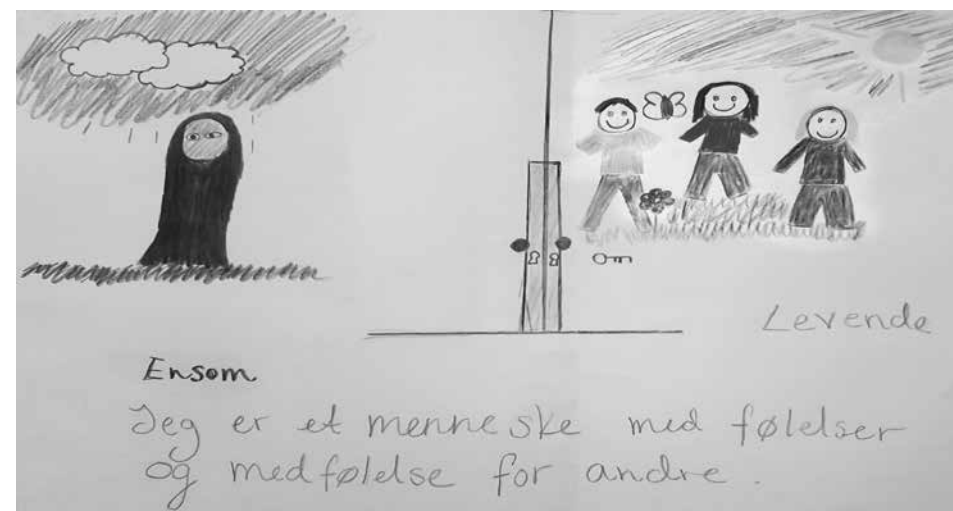 Levende
Ensom
Jeg er et menneske med følelser
og medfølelse for andre.